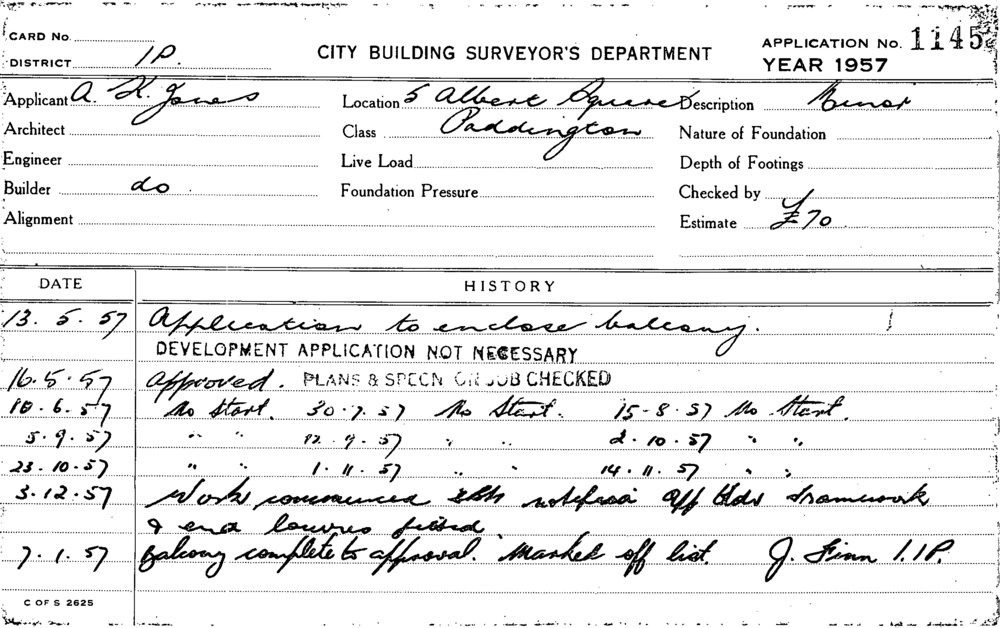 CARD No.
DISTRICT 1P.
CITY BUILDING SURVEYOR'S DEPARTMENT
APPLICATION No. 1145
YEAR 1957
Applicant A. K. Jones Location 5 Albert Square Description Minor
Architect Class Paddington Nature of Foundation
Engineer Live Load Depth of Footings
Builder do Foundation Pressure Checked by
Alignment Estimate £70
DATE HISTORY
13.5.57 Application to enclose balcony.
DEVELOPMENT APPLICATION NOT NECESSARY
16.5.57 Approved. PLANS & SPECN ON JOB CHECKED
10.6.57 No Start. 30.7.57 No Start. 15.8.57 No Start.
5.9.57 " " 12.9.57 " " 2.10.57 " "
23.10.57 " " 1.11.57 " " 14.11.57 " "
3.12.57 Work commenced framework
& end louvres fitted
7.1.57 Balcony complete to approval. Marked off list. J. Finn 1.1P.
C OF S 2625